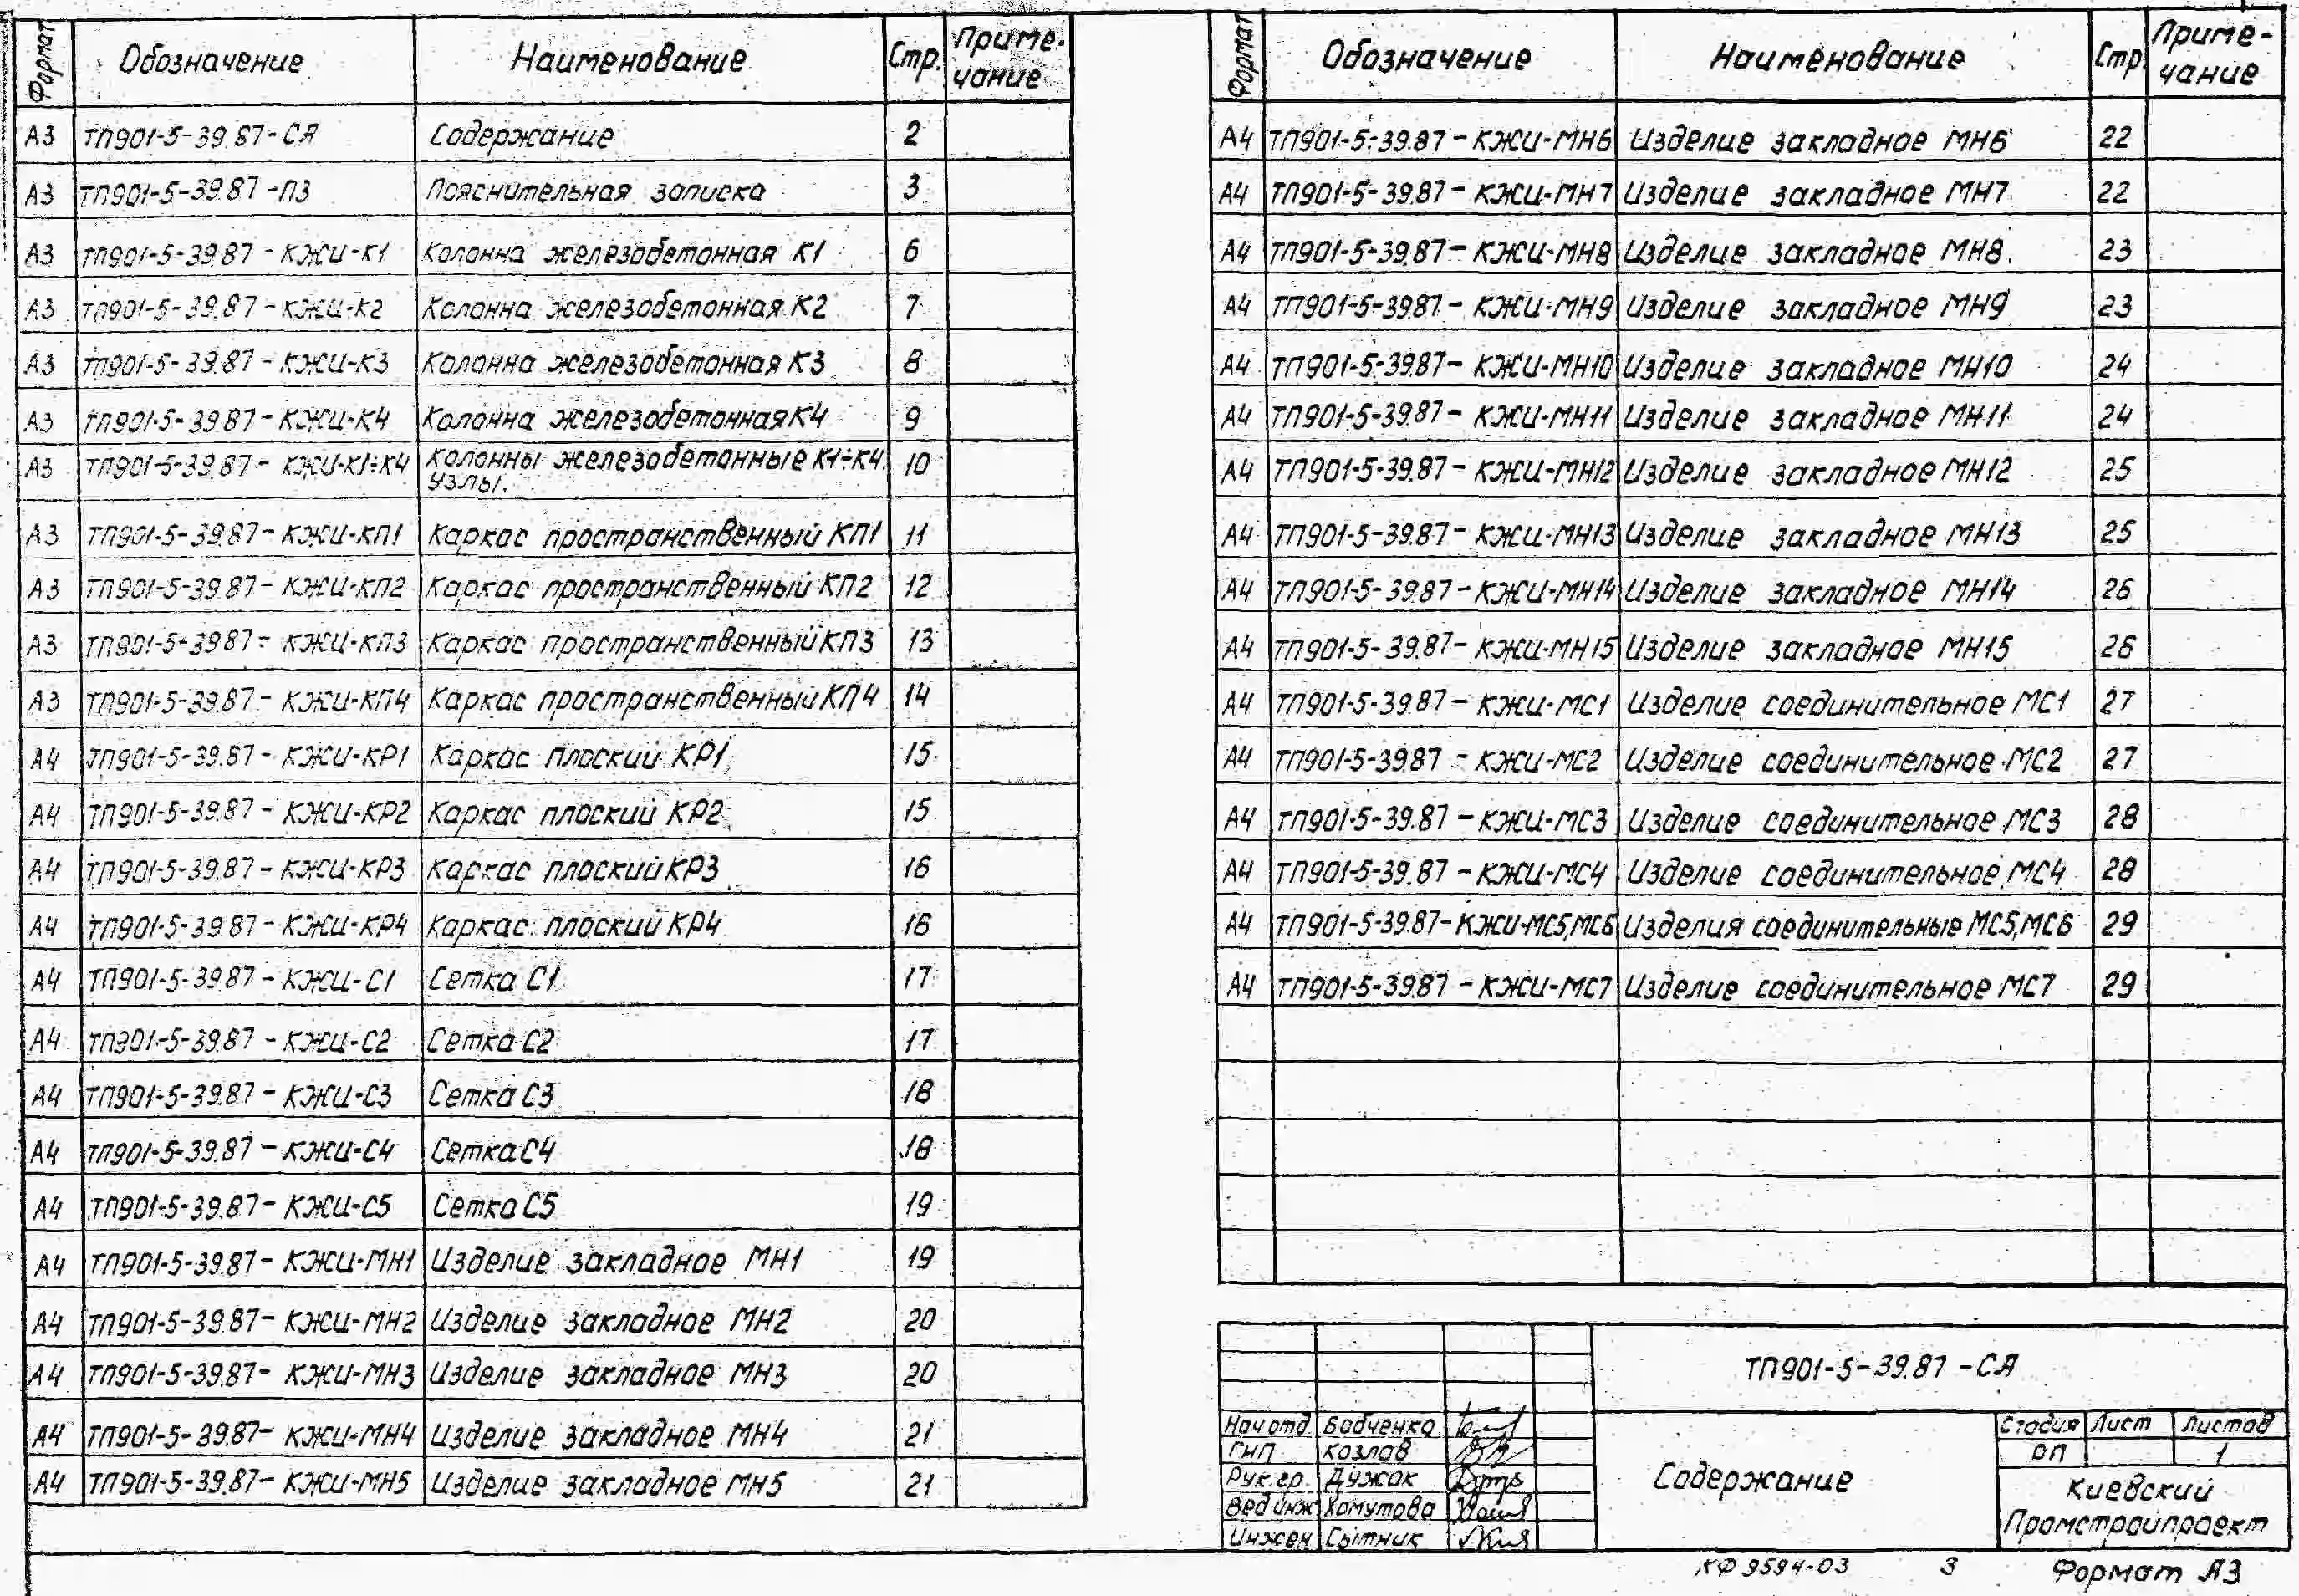 Формат Обозначение Наименование Стр. Приме-чание
А3 ТП901-5-39.87-СЯ Содержание 2
А3 ТП901-5-39.87-ПЗ Пояснительная записка 3
А3 ТП901-5-39.87-КЖИ-К1 Колонна железобетонная К1 6
А3 ТП901-5-39.87-КЖИ-К2 Колонна железобетонная К2 7
А3 ТП901-5-39.87-КЖИ-К3 Колонна железобетонная К3 8
А3 ТП901-5-39.87-КЖИ-К4 Колонна железобетонная К4 9
А3 ТП901-5-39.87-КЖИ-К1÷К4 Колонны железобетонные К1÷К4. 10
Узлы.
А3 ТП901-5-39.87-КЖИ-КП1 Каркас пространственный КП1 11
А3 ТП901-5-39.87-КЖИ-КП2 Каркас пространственный КП2 12
А3 ТП901-5-39.87-КЖИ-КП3 Каркас пространственный КП3 13
А3 ТП901-5-39.87-КЖИ-КП4 Каркас пространственный КП4 14
А4 ТП901-5-39.87-КЖИ-КР1 Каркас плоский КР1 15
А4 ТП901-5-39.87-КЖИ-КР2 Каркас плоский КР2 15
А4 ТП901-5-39.87-КЖИ-КР3 Каркас плоский КР3 16
А4 ТП901-5-39.87-КЖИ-КР4 Каркас плоский КР4 16
А4 ТП901-5-39.87-КЖИ-С1 Сетка С1 17
А4 ТП901-5-39.87-КЖИ-С2 Сетка С2 17
А4 ТП901-5-39.87-КЖИ-С3 Сетка С3 18
А4 ТП901-5-39.87-КЖИ-С4 Сетка С4 18
А4 ТП901-5-39.87-КЖИ-С5 Сетка С5 19
А4 ТП901-5-39.87-КЖИ-МН1 Изделие закладное МН1 19
А4 ТП901-5-39.87-КЖИ-МН2 Изделие закладное МН2 20
А4 ТП901-5-39.87-КЖИ-МН3 Изделие закладное МН3 20
А4 ТП901-5-39.87-КЖИ-МН4 Изделие закладное МН4 21
А4 ТП901-5-39.87-КЖИ-МН5 Изделие закладное МН5 21
Формат Обозначение Наименование Стр. Приме-чание
А4 ТП901-5-39.87-КЖИ-МН6 Изделие закладное МН6 22
А4 ТП901-5-39.87-КЖИ-МН7 Изделие закладное МН7 22
А4 ТП901-5-39.87-КЖИ-МН8 Изделие закладное МН8 23
А4 ТП901-5-39.87-КЖИ-МН9 Изделие закладное МН9 23
А4 ТП901-5-39.87-КЖИ-МН10 Изделие закладное МН10 24
А4 ТП901-5-39.87-КЖИ-МН11 Изделие закладное МН11 24
А4 ТП901-5-39.87-КЖИ-МН12 Изделие закладное МН12 25
А4 ТП901-5-39.87-КЖИ-МН13 Изделие закладное МН13 25
А4 ТП901-5-39.87-КЖИ-МН14 Изделие закладное МН14 26
А4 ТП901-5-39.87-КЖИ-МН15 Изделие закладное МН15 26
А4 ТП901-5-39.87-КЖИ-МС1 Изделие соединительное МС1 27
А4 ТП901-5-39.87-КЖИ-МС2 Изделие соединительное МС2 27
А4 ТП901-5-39.87-КЖИ-МС3 Изделие соединительное МС3 28
А4 ТП901-5-39.87-КЖИ-МС4 Изделие соединительное МС4 28
А4 ТП901-5-39.87-КЖИ-МС5,МС6 Изделия соединительные МС5,МС6 29
А4 ТП901-5-39.87-КЖИ-МС7 Изделие соединительное МС7 29
ТП901-5-39.87-СЯ
Нач отд. Бабченко
ГИП Козлов
Рук.гр. Дужак
Вед инж Хомутова
Инжен Сытник
Содержание
Стадия Лист Листов
РП 1
Киевский
Промстройпроект
КФ 9594-03 3 Формат А3